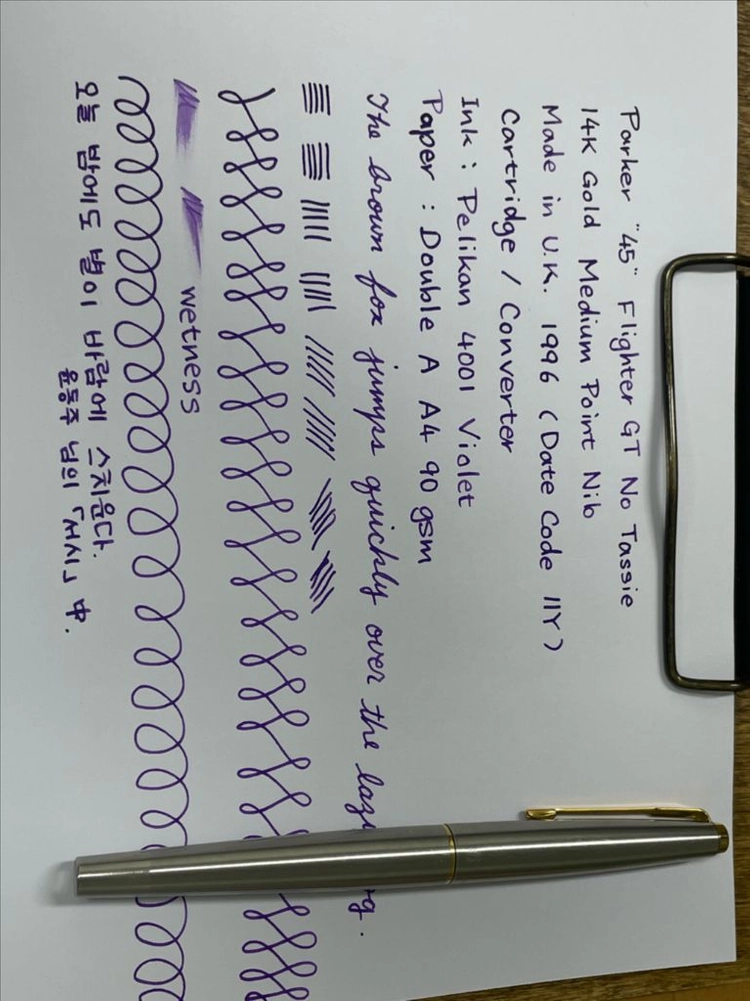 Parker "45" Flighter GT No Tassie
14K Gold Medium Point Nib
Made in U.K. 1996 (Date Code IIY)
Cartridge / Converter
Ink : Pelikan 4001 Violet
Paper : Double A A4 90 gsm
The brown fox jumps quickly over the lazy
wetness
오늘 밤에도 별이 바람에 스치운다.
윤동주 님의 「서시」 中.